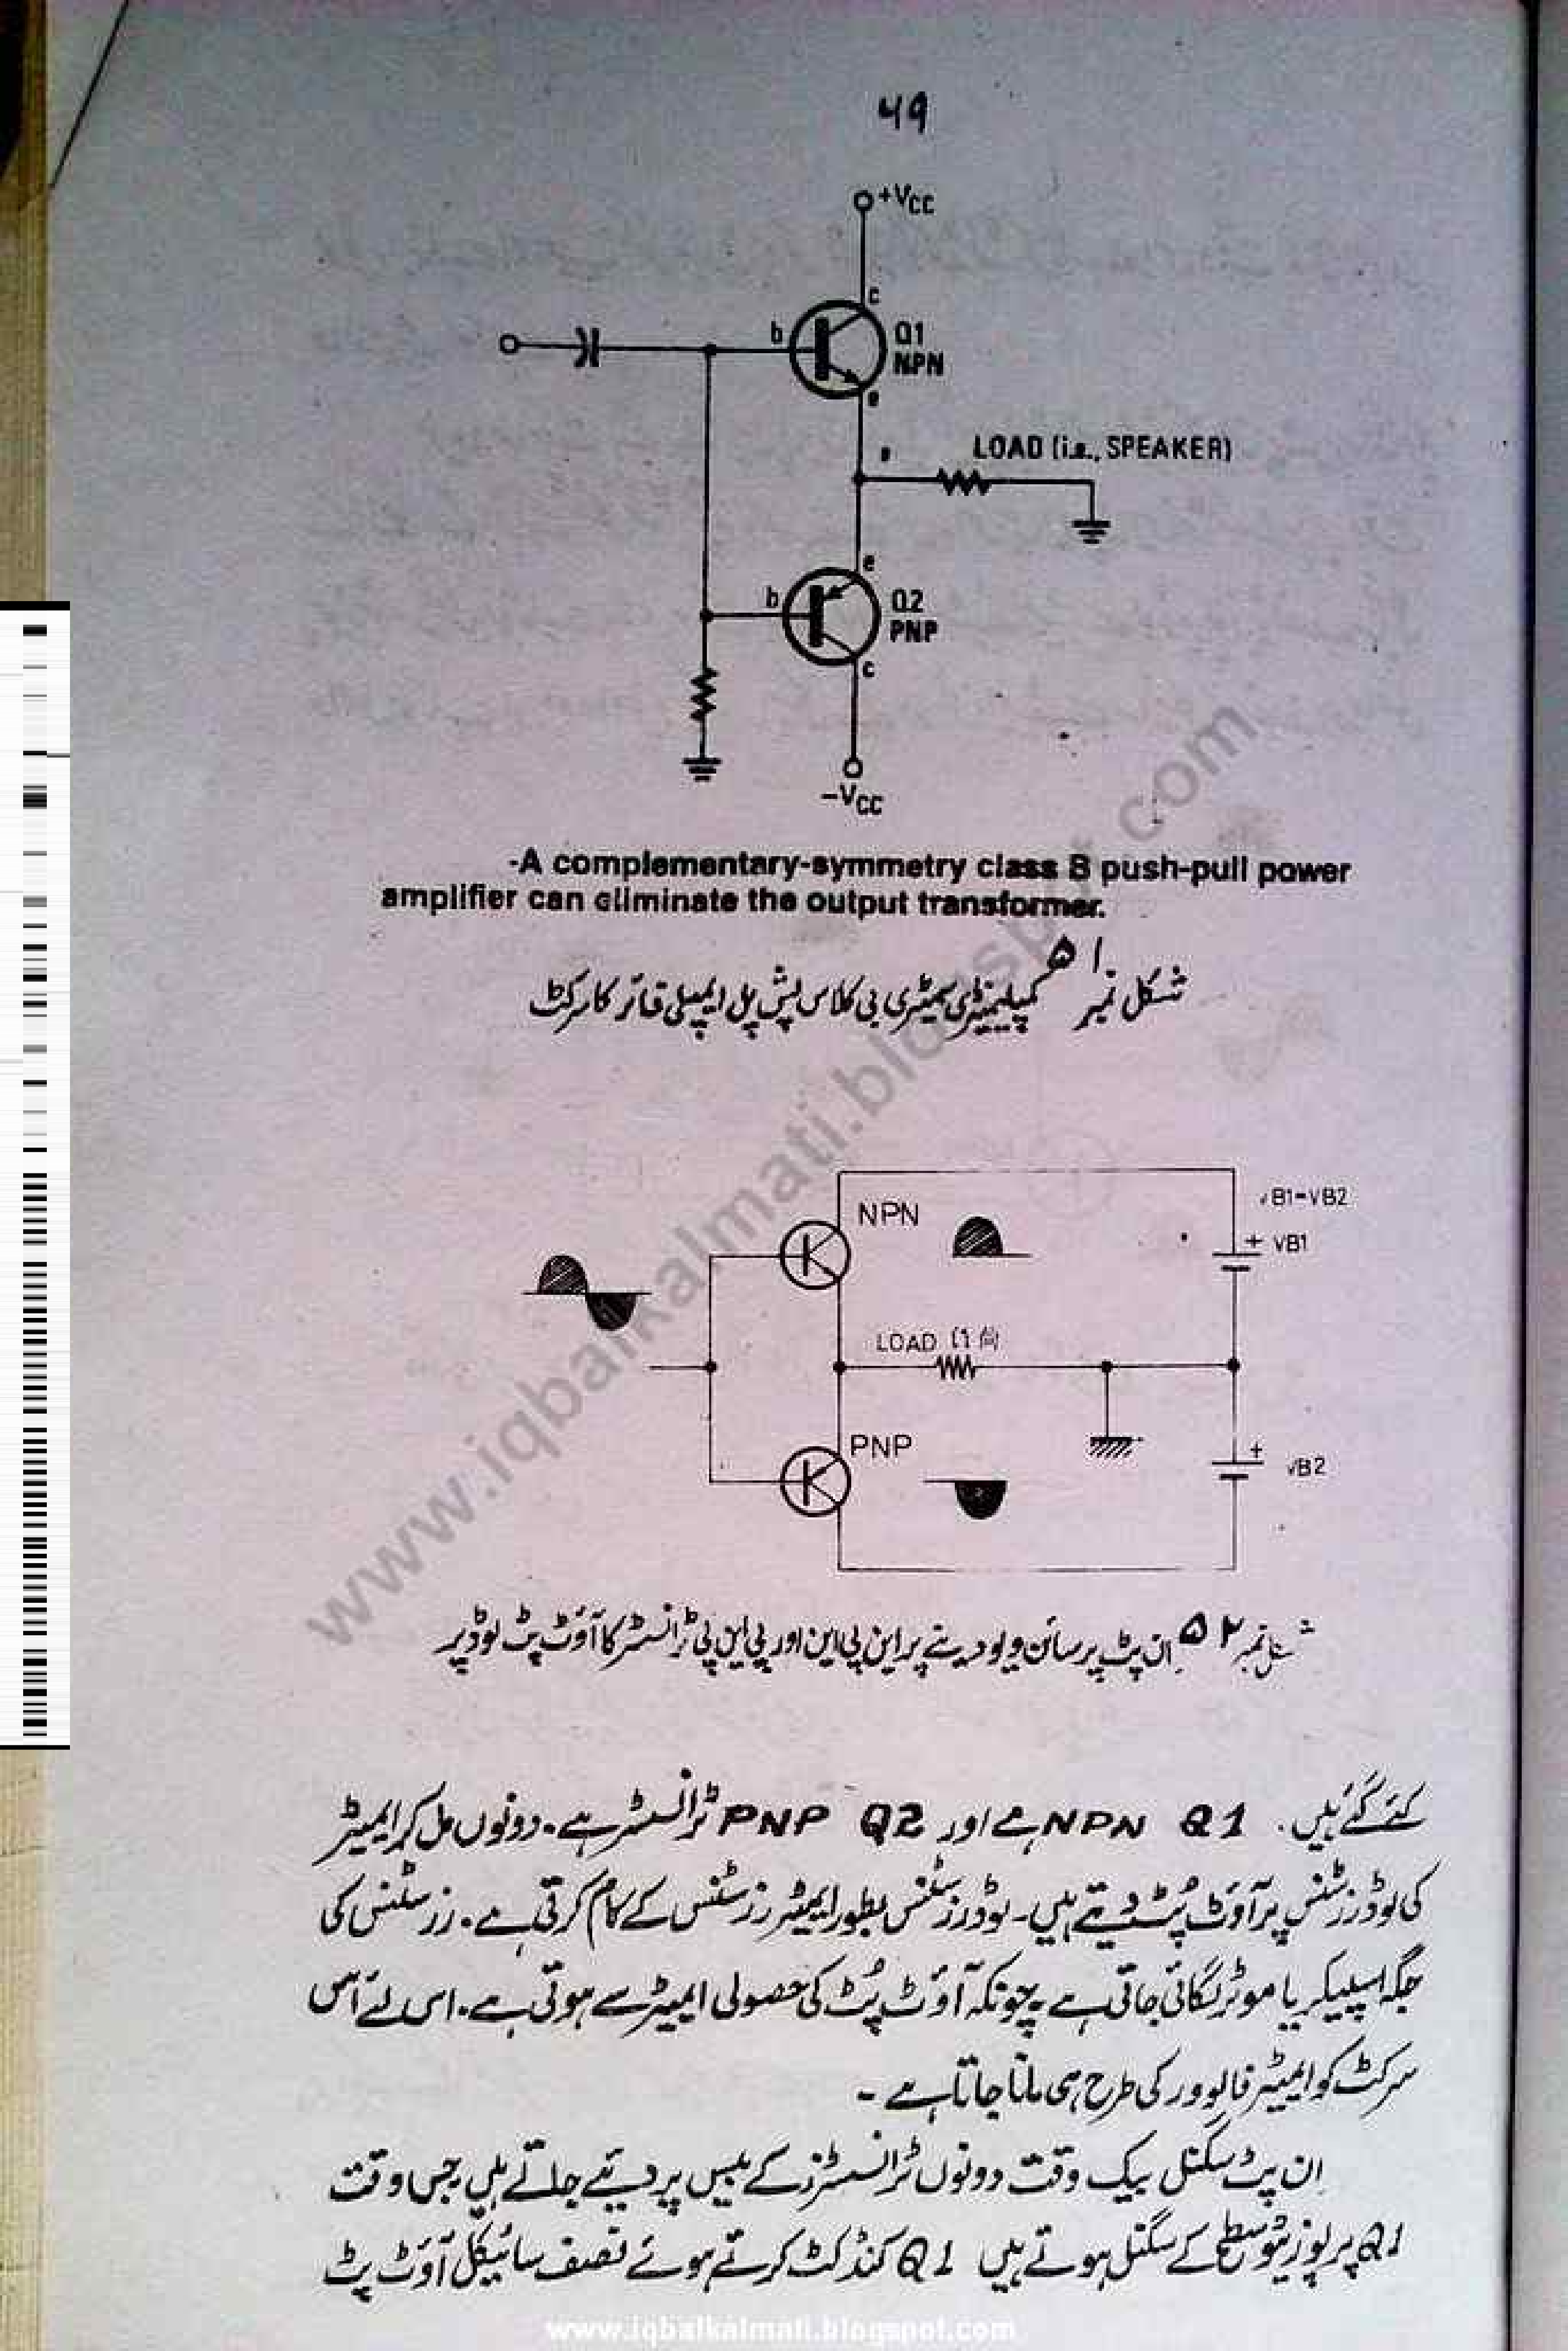 49
+VCC
c
b
Q1
NPN
e
LOAD (i.e., SPEAKER)
e
b
Q2
PNP
c
-VCC
-A complementary-symmetry class B push-pull power
amplifier can eliminate the output transformer.
شکل نمبر ۵۱ کمپلیمنٹری سمیٹری بی کلاس پش پل ایمپلی فائر کا سرکٹ
NPN
VB1=VB2
+ VB1
LOAD
PNP
+
VB2
شکل نمبر ۵۲ ان پٹ پر سائن ویو دینے پر این پی این اور پی این پی ٹرانسسٹر کا آؤٹ پٹ لوڈ پر
کئے گئے ہیں۔ Q1 NPN ہے اور Q2 PNP ٹرانسسٹر ہے۔ دونوں مل کر ایمیٹر
کی لوڈ رزسٹنس پر آؤٹ پُٹ دیتے ہیں۔ لوڈ رزسٹنس بطور ایمیٹر رزسٹنس کے کام کرتی ہے۔ رزسٹنس کی
جگہ اسپیکر یا موٹر لگائی جاتی ہے۔ چونکہ آؤٹ پُٹ کی حصولی ایمیٹر سے ہوتی ہے۔ اس لئے اس
سرکٹ کو ایمیٹر فالوور کی طرح ہی مانا جاتا ہے۔
ان پٹ سگنل بیک وقت دونوں ٹرانسسٹرز کے بیس پر دیئے جاتے ہیں۔ جس وقت
Q1 پر پوزیٹو سطح کے سگنل ہوتے ہیں Q1 کنڈکٹ کرتے ہوئے نصف سائیکل آؤٹ پٹ
www.iqbalkalmati.blogspot.com
www.iqbalkalmati.blogspot.com